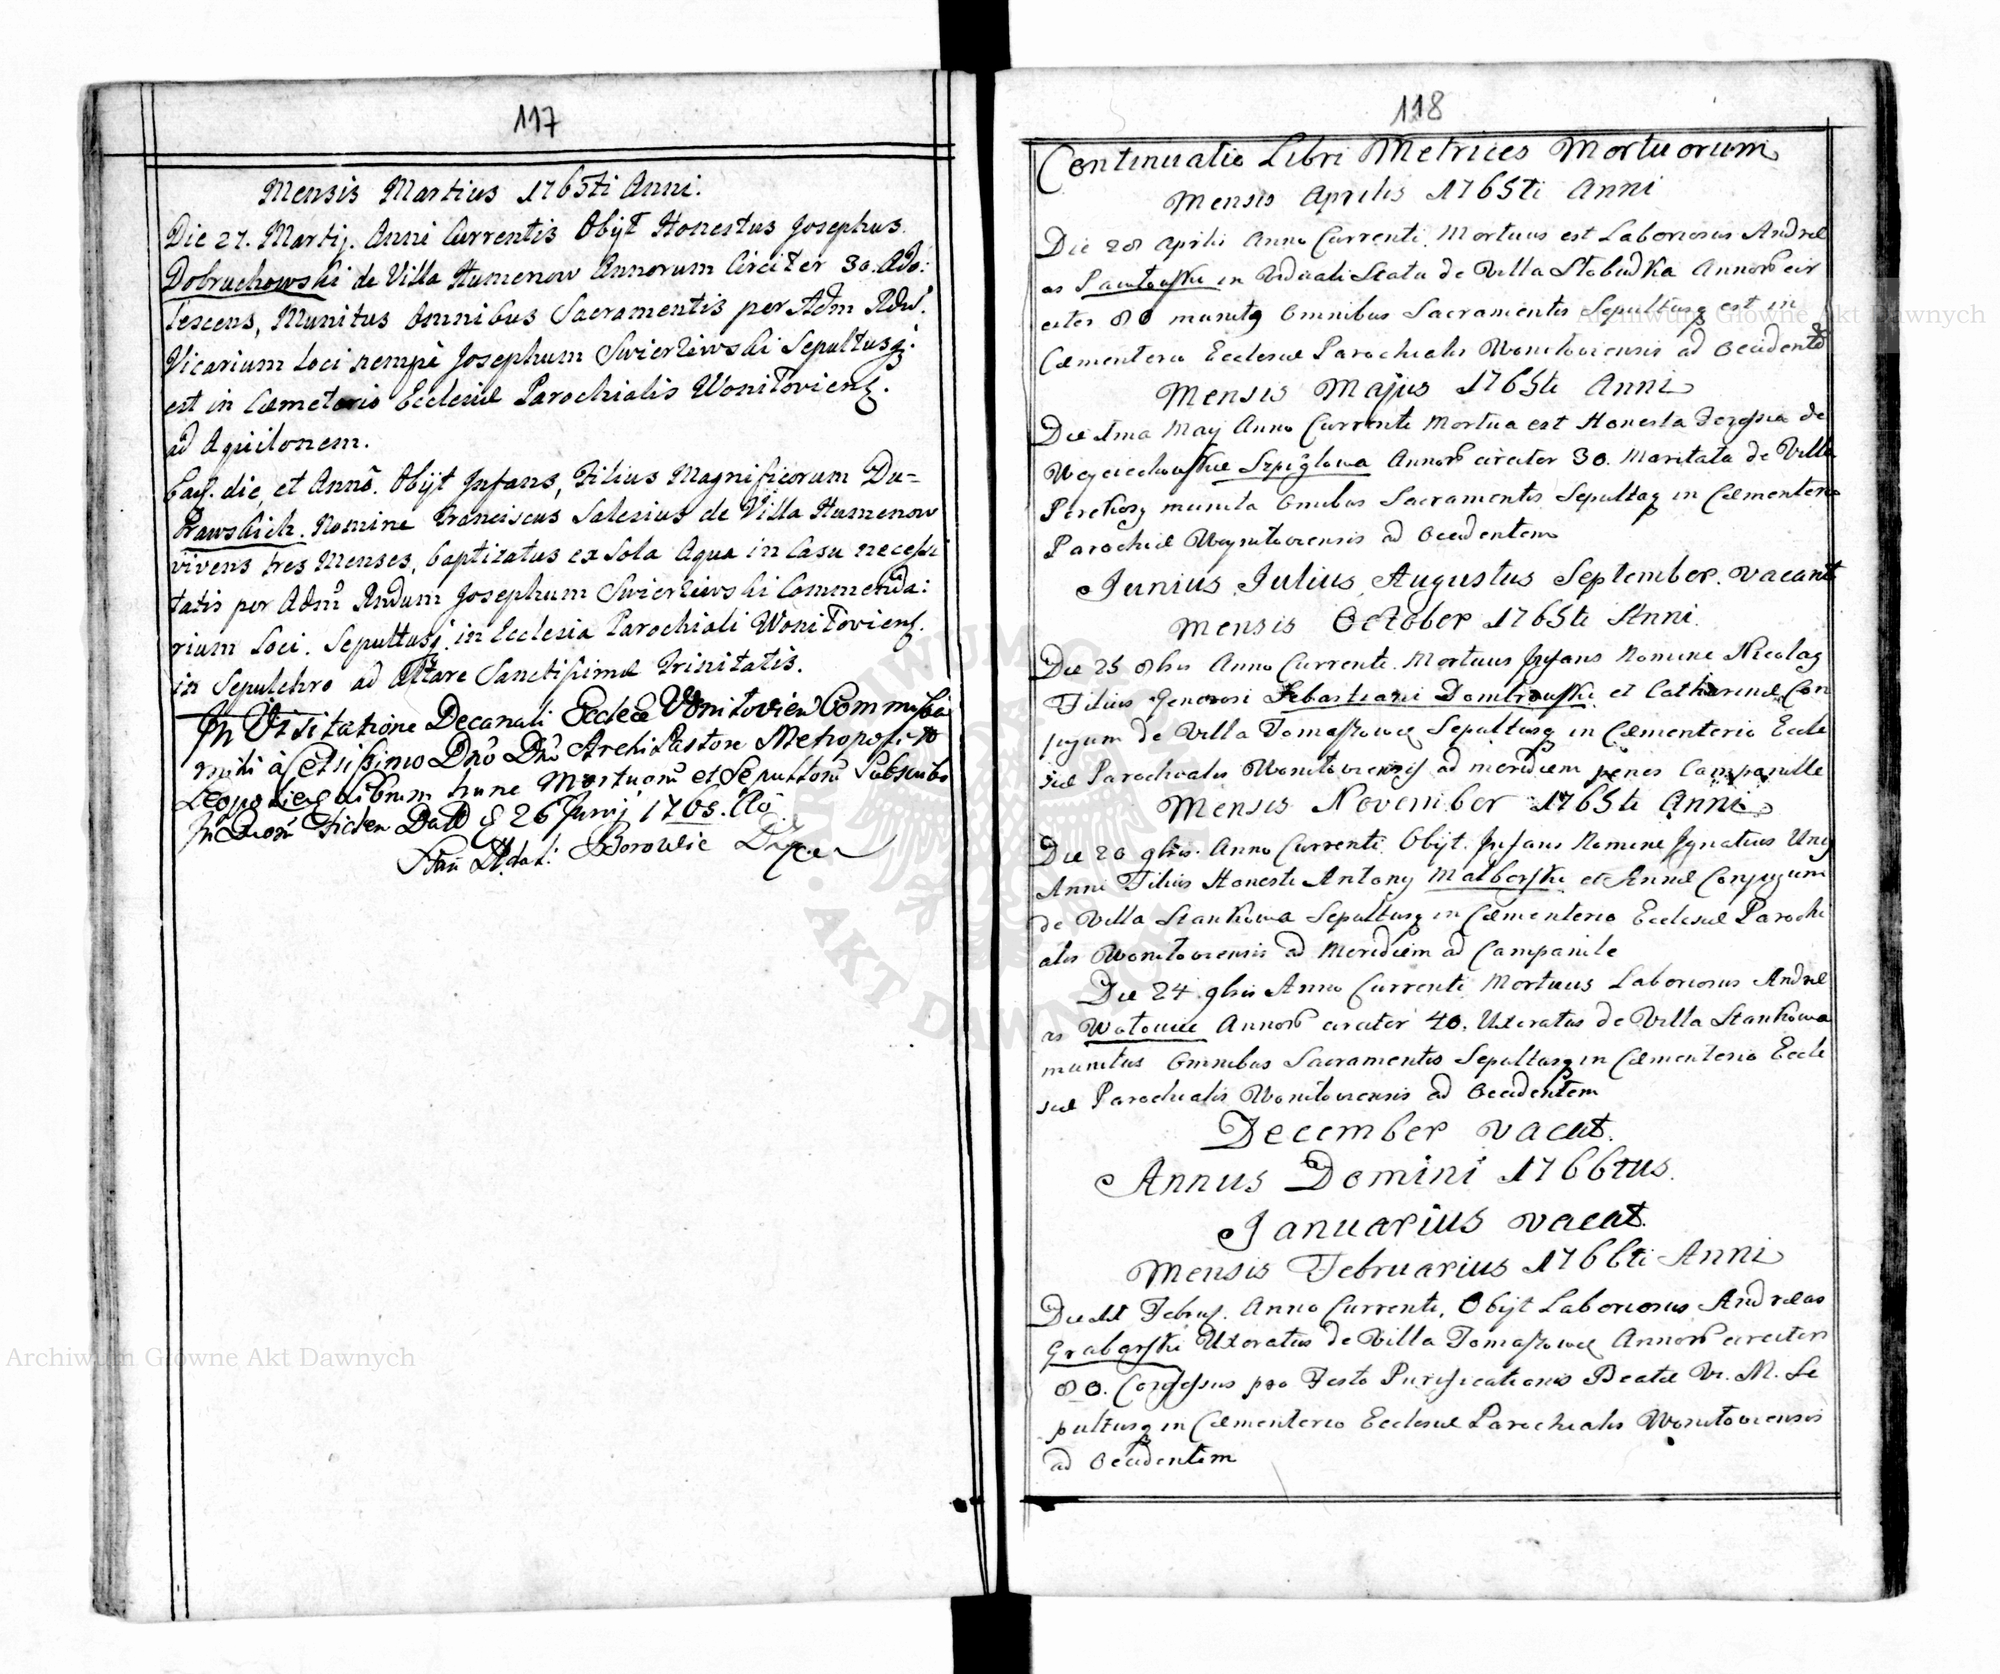 117
Mensis Martius 1765ti Anni.
Die 27. Martij. Anni Currentis Obijt Honestus Josephus
Dobruchowski de Villa Humenow Annorum Circiter 30. Ado:
lescens, Munitus Omnibus Sacramentis per Adm Rdu.
Vicarium Loci nempè Josephum Swierziewski Sepultusq;
est in Cæmeterio Ecclesiæ Parochialis Wonitoviens.
ad Aquilonem.
die, et Anno. Obijt Infans, Filius Magnificorum Du=
brawskich. Nomine Franciscus Salesius de Villa Humenow
vivens tres Menses, baptizatus ex Sola Aqua in Casu necessi
tatis per Adm Rndum Josephum Swierziewski Commenda:
rium Loci. Sepultusq. in Ecclesia Parochiali Wonitoviens.
in Sepulchro ad Altare Sanctissimæ Trinitatis.
In Visitatione Decanali Ecclæ Vonitovien Commissa
mihi à Cels̃issimo Dno Dno Archi Pastore Metropolitto
Leopoliens Librum hunc Mortuorũ et Sepultorũ Subscribo
In Fidem Datt 26 Junij 1765. Ao
Borowic
118
Continuatio Libri Metrices Mortuorum
Mensis Aprilis 1765ti Anni
Die 28 Aprilis Anno Currenti Mortuus est Laboriosus Andræ
as in Viduali Statu de Villa Stobudka Annorũ cir
citer 80 munitq Omnibus Sacramentis Sepultusq est in
Cæmenterio Ecclesiæ Parochialis Wonitoviensis ad Occidentẽ
Mensis Majus 1765ti Anni
Die 1ma Maij Anno Currenti Mortua est Honesta de
Woyciechowskie Szpiglowa Annorũ circiter 30. Maritata de Villa
Perekosy munita Omibus Sacramentis Sepultaq in Cæmenterio
Parochiæ Woynitoviensis ad Occidentem
Junius Julius, Augustus September. vacant
Mensis October 1765ti Anni.
Die 25 8bris Anno Currenti. Mortuus Infans Nomine Nicolaq
Filius Generosi Sebastiani Dombrowski et Catharinæ Con
jugum de Villa Tomaszowce Sepultusq in Cæmenterio Eccle
siæ Parochialis Wonitoviensis ad meridiem penes Campanille
Mensis November 1765ti Anni
Die 20 9bris. Anno Currenti. Obijt. Infans Nomine Ignatius Uniq
Anni Filius Honesti Antonij Malborski et Annæ Conjugum
de Villa Stankowa Sepultusq in Cæmenterio Ecclesiæ Parochi
alis Wonitoviensis ad Meridiem ad Campanile
Die 24. 9bris Anno Currenti Mortuus Laboriosus Andræ
as Annorũ circiter 40. Uxoratus de Villa Stankowa
munitus Omnibus Sacramentis Sepultusq in Cæmenterio Eccle
siæ Parochialis Wonitoviensis ad Occidentem
December vacat.
Annus Domini 1766tus.
Januarius vacat.
Mensis Februarius 1766ti Anni
Die Febru. Anno Currenti, Obijt Laboriosus Andreas
Grabarski Uxoratus de Villa Tomaszowce Annorũ circiter
80. Confessus pro Festo Purificationis Beatæ Vi. M. Se
pultusq in Cæmenterio Ecclesiæ Parochialis Wonitoviensis
ad Occidentem
Archiwum Główne Akt Dawnych
Archiwum Główne Akt Dawnych